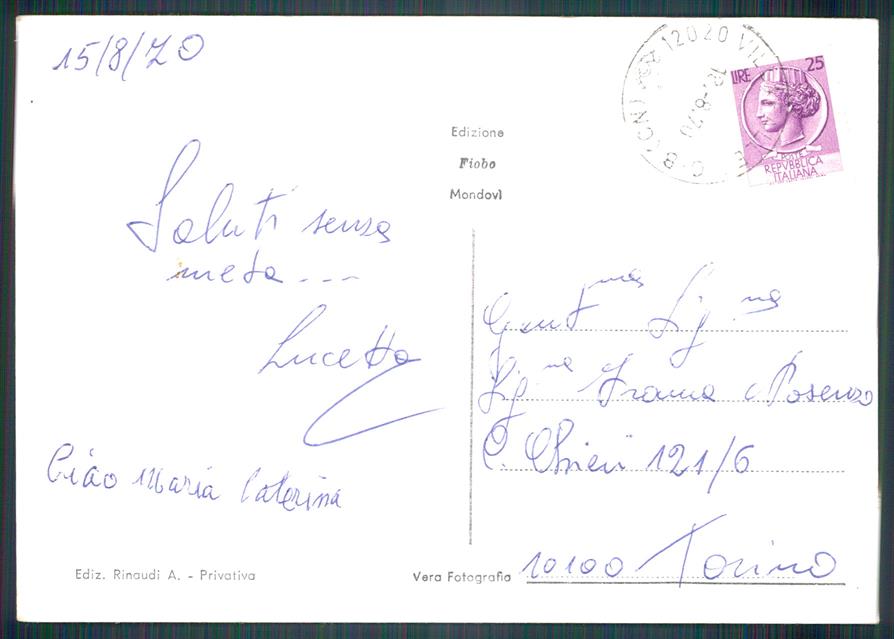 15/8/70
12020 VIL
18.-8.70
(CN)
LIRE 25
POSTE
REPVBBLICA
ITALIANA
Edizione
Fiobo
Mondovì
Saluti senza
meta ---
Lucetta
Ciao Maria Caterina
Gent.ma Sig.na
Sig.na Franca
C. Chieri 121/6
10100 Torino
Ediz. Rinaudi A. - Privativa
Vera Fotografia